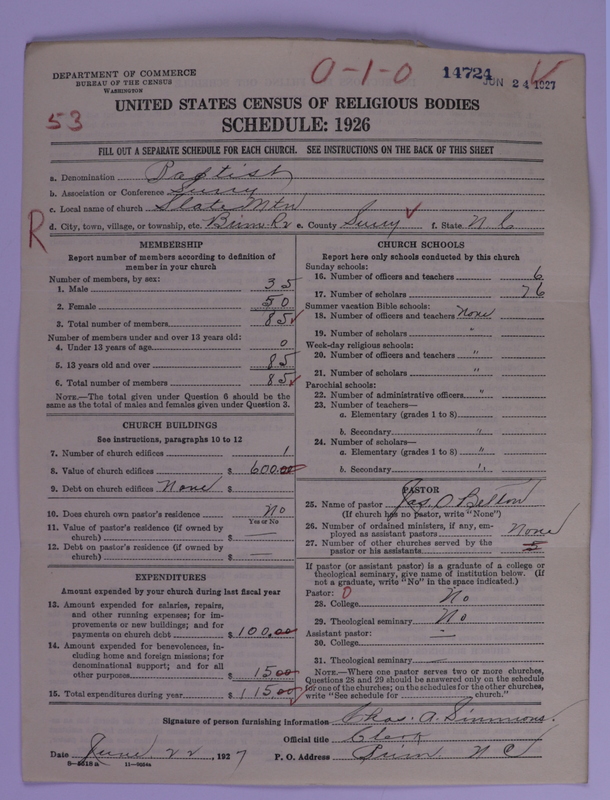 DEPARTMENT OF COMMERCE
BUREAU OF THE CENSUS
WASHINGTON
0-1-0
14724
JUN 24 1927
53
UNITED STATES CENSUS OF RELIGIOUS BODIES
SCHEDULE: 1926
FILL OUT A SEPARATE SCHEDULE FOR EACH CHURCH. SEE INSTRUCTIONS ON THE BACK OF THIS SHEET
a. Denomination Baptist
b. Association or Conference Surry
c. Local name of church Slate Mtn
d. City, town, village, or township, etc. e. County Surry f. State N. C
R
MEMBERSHIP
Report number of members according to definition of member in your church
Number of members, by sex:
1. Male 35
2. Female 50
3. Total number of members 85
Number of members under and over 13 years old:
4. Under 13 years of age 0
5. 13 years old and over 85
6. Total number of members 85
NOTE.—The total given under Question 6 should be the
same as the total of males and females given under Question 3.
CHURCH BUILDINGS
See instructions, paragraphs 10 to 12
7. Number of church edifices 1
8. Value of church edifices $ 600.00
9. Debt on church edifices None $
10. Does church own pastor's residence No
Yes or No
11. Value of pastor's residence (if owned by
church) $ —
12. Debt on pastor's residence (if owned by
church) $ —
EXPENDITURES
Amount expended by your church during last fiscal year
13. Amount expended for salaries, repairs,
and other running expenses; for im-
provements or new buildings; and for
payments on church debt $ 100.00
14. Amount expended for benevolences, in-
cluding home and foreign missions; for
denominational support; and for all
other purposes $ 15.00
15. Total expenditures during year $ 115.00
CHURCH SCHOOLS
Report here only schools conducted by this church
Sunday schools:
16. Number of officers and teachers 6
17. Number of scholars 76
Summer vacation Bible schools:
18. Number of officers and teachers None
19. Number of scholars "
Week-day religious schools:
20. Number of officers and teachers "
21. Number of scholars "
Parochial schools:
22. Number of administrative officers "
23. Number of teachers—
a. Elementary (grades 1 to 8)
b. Secondary "
24. Number of scholars—
a. Elementary (grades 1 to 8) "
b. Secondary "
PASTOR
25. Name of pastor Jas. O. Belton
(If church has no pastor, write "None")
26. Number of ordained ministers, if any, em-
ployed as assistant pastors None
27. Number of other churches served by the
pastor or his assistants 5
If pastor (or assistant pastor) is a graduate of a college or
theological seminary, give name of institution below. (If
not a graduate, write "No" in the space indicated.)
Pastor: 0
28. College No
29. Theological seminary No
Assistant pastor: —
30. College
31. Theological seminary —
NOTE.—Where one pastor serves two or more churches,
Questions 28 and 29 should be answered only on the schedule
for one of the churches; on the schedules for the other churches,
write "See schedule for church."
Signature of person furnishing information A. Simmons.
Official title Clerk
Date June 22, 1927 P. O. Address N C
8-5018a 11-9034a